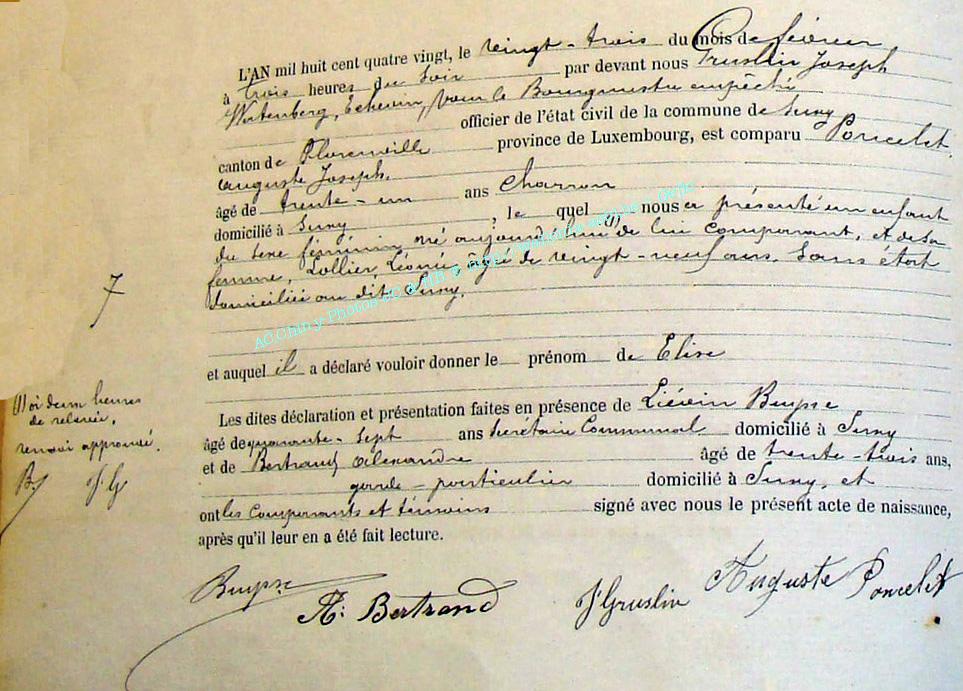 L'AN mil huit cent quatre vingt, le vingt-trois du mois de février
à trois heures du soir par devant nous Gruslin Joseph
Wertenberg, Echevin, pour le Bourgmestre empêché
officier de l'état civil de la commune de Suny
canton de Florenville province de Luxembourg, est comparu Poncelet
Auguste Joseph.
âgé de trente-un ans Charron
domicilié à Suny, le quel nous a présenté un enfant
du sexe féminin né aujourd'hui (1) de lui comparant, et de sa
femme, Lollier, Léonie âgée de vingt-neuf ans. Sans état
domiciliée au dit Suny.
7
et auquel il a déclaré vouloir donner le prénom de Elise
(1) à deux heures
de relevée,
renvoi approuvé.
B. JG
Les dites déclaration et présentation faites en présence de Liévin Buysse
âgé de quarante-sept ans Secrétaire Communal domicilié à Suny
et de Bertrand Alexandre âgé de trente-trois ans,
garde-particulier domicilié à Suny, et
ont les comparants et témoins signé avec nous le présent acte de naissance,
après qu'il leur en a été fait lecture.
Buysse
A. Bertrand
J Gruslin
Auguste Poncelet